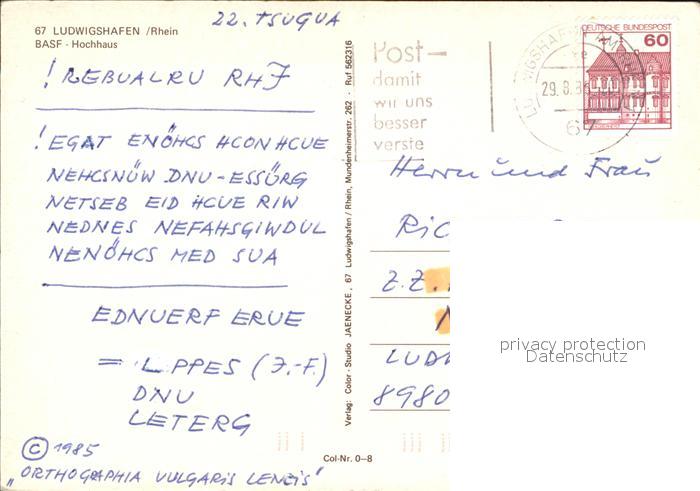 22. TSUGUA
67 LUDWIGSHAFEN /Rhein
BASF - Hochhaus
! REBUALRU RHJ
! EGAT ENÖHCS HCON HCUE
NEHCSNÜW DNU-ESSÜRG
NETSEB EID HCUE RIW
NEDNES NEFAHSGIWDUL
NENÖHCS MED SUA
EDNUERF ERUE
= PPES (J.-F.)
DNU
LETERG
© 1985
„ORTHOGRAPHIA VULGARIS LENZIS"
Verlag: Color - Studio JAENECKE, 67 Ludwigshafen / Rhein, Mundenheimerstr. 262 - Ruf 562316
Col-Nr. 0-8
Post-
damit
wir uns
besser
verste
LUDWIGSHAFEN AM
29.8.
67
DEUTSCHE BUNDESPOST
60
Herrn und Frau
RIC
Z.Z.
LUD
8980
privacy protection
Datenschutz